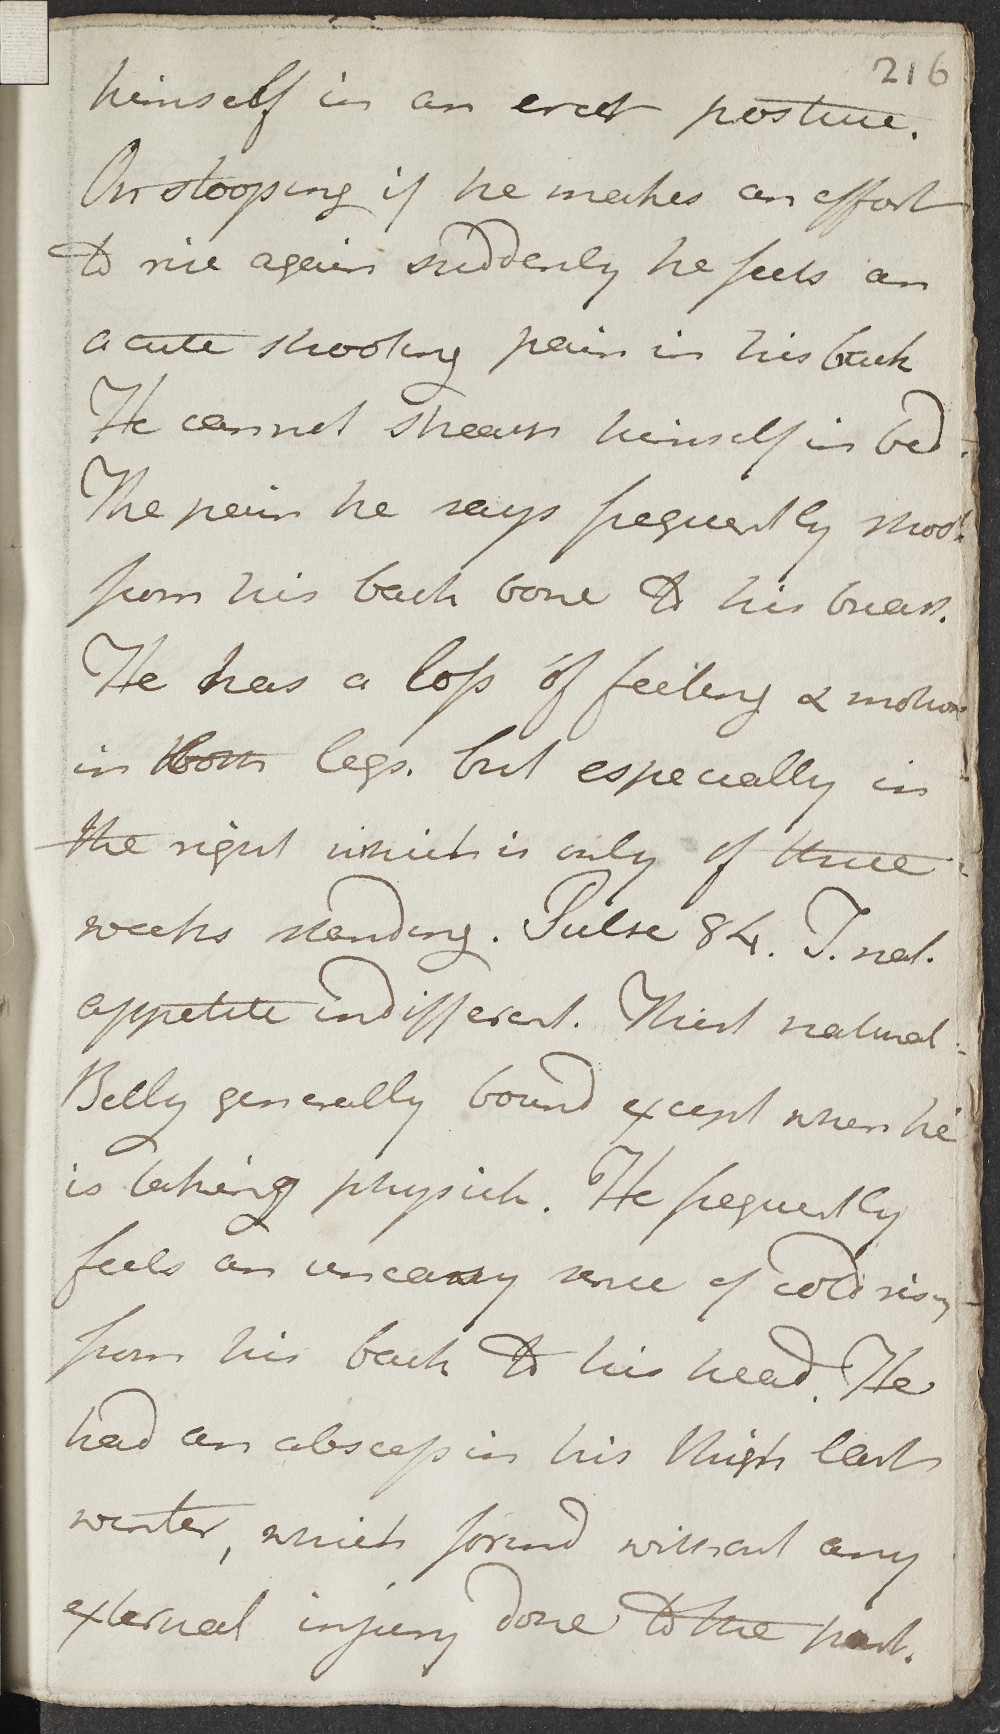 216
himself in an erect posture.
On stooping if he makes an effort
to rise again suddenly he feels an
acute shooting pain in his back
He cannot himself in bed.
The pain he says frequently shoots
from his back bone to his breast.
He has a loss of feeling & motion
in both legs. but especially in
the right which is only of three
weeks standing. Pulse 84. T. nat.
appetite indifferent. Thirst natural.
Belly generally bound except when he
is taking physick. He frequently
feels an uneasy sense of cold rising
from his back to his head. He
had an abscess in his thigh last
winter, which formd without any
external injury done to the part.